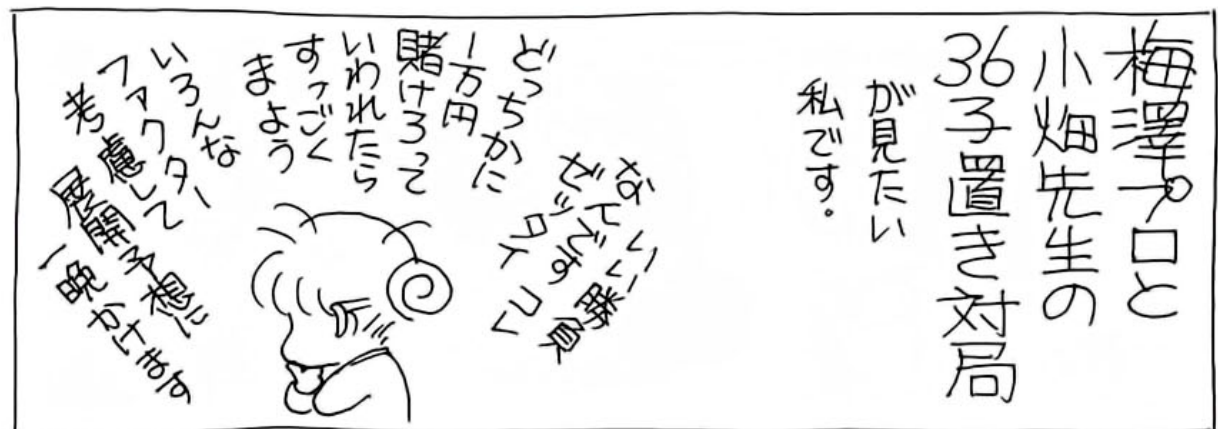 梅澤プロと
小畑先生の
36子置き対局
が見たい
私です。
いい勝負
なんです
ゼッタイコレ
どっちかに
1万円
賭けろって
いわれたら
すっごく
まよう
いろんな
ファクター
考慮して
展開予想に
一晩かけます